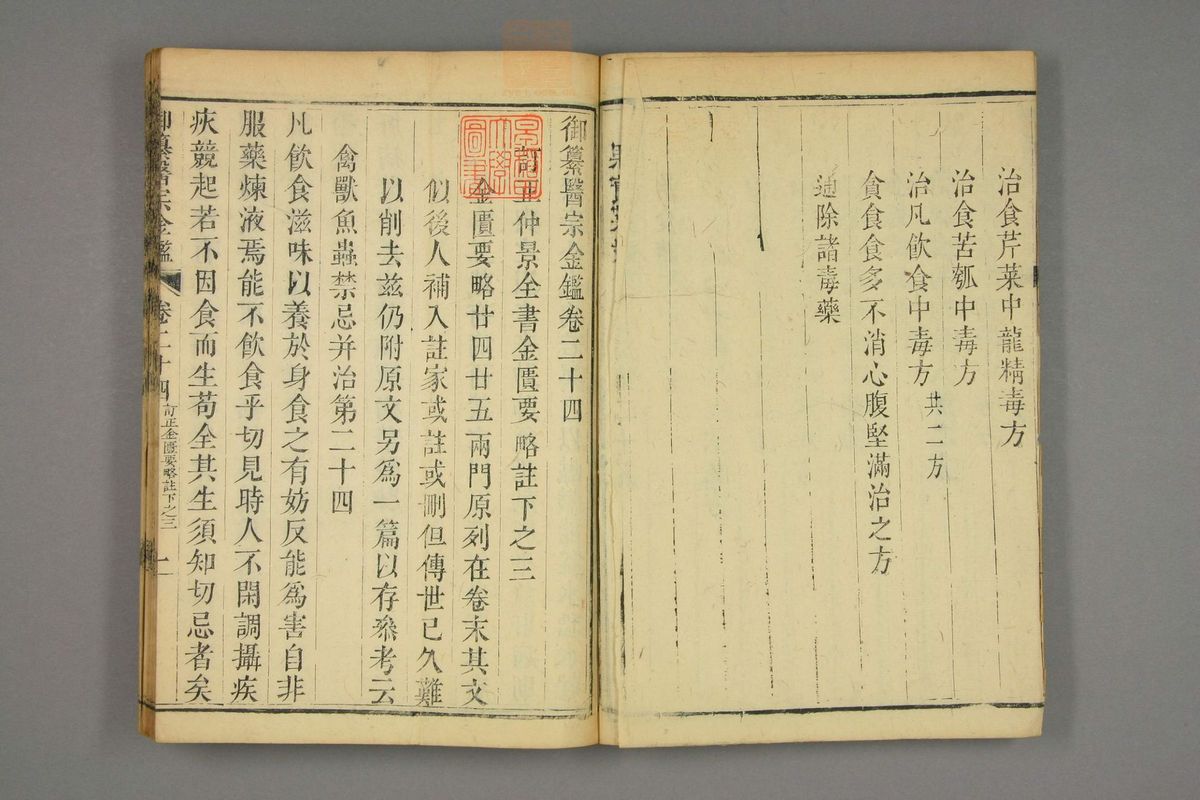 治食芹菜中龍精毒方
治食苦瓠中毒方
治凡飲食中毒方 共二方
貪食食多不消心腹堅滿治之方
通除諸毒藥
御纂醫宗金鑑卷二十四
訂正仲景全書金匱要略註下之三
金匱要略廿四廿五兩門原列在卷末其文
似後人補入註家或註或刪但傳世已久難
以削去兹仍附原文另為一篇以存叅考云
禽獸魚蟲禁忌并治第二十四
凡飲食滋味以養於身食之有妨反能為害自非
服藥煉液焉能不飲食乎切見時人不閑調攝疾
疢競起若不因食而生苟全其生須知切忌者矣
御纂醫宗金鑑 卷二十四 訂正金匱要略註下之三 一